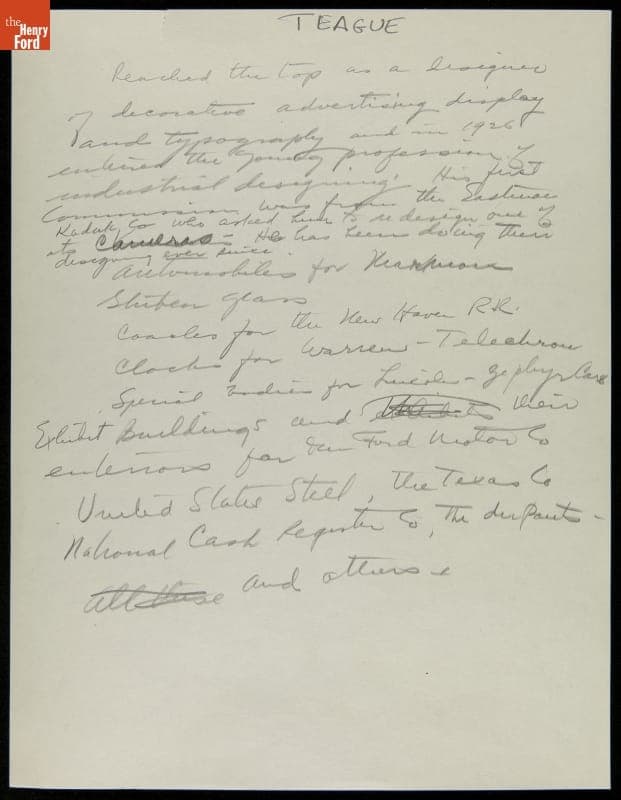 the
Henry
Ford
TEAGUE
Reached the top as a designer
of decorative advertising display
and typography and in 1926
entered the young profession of
industrial designing. His first
Commission was from the Eastman
Kodak Co who asked him to redesign one of
its Cameras - He has been doing their
designing ever since.
Automobiles for Marmon
Steuben glass
Coaches for the New Haven R.R.
Clocks for Warren - Telechron
Special bodies for Lincoln - Zephyr Cars
Exhibit Buildings and exhibits their
interiors for Ford Motor Co
United States Steel, The Texas Co
National Cash Register Co, The du Ponts -
All these and others